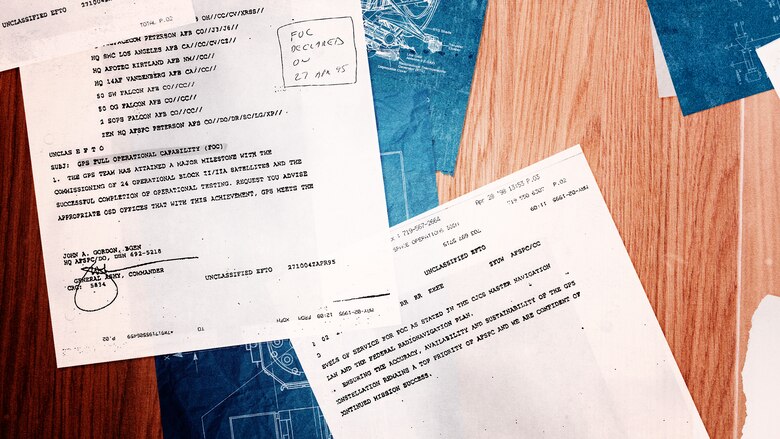 UNCLASSIFIED EFTO
TOTAL P.02
OH//CC/CV/XRSS//
PETERSON AFB CO//J3/J6//
HQ SMC LOS ANGELES AFB CA//CC/CV/CZ//
HQ AFOTEC KIRTLAND AFB NM//CC//
HQ 14AF VANDENBERG AFB CA//CC//
50 SW FALCON AFB CO//CC//
50 OG FALCON AFB CO//CC//
2 SOPS FALCON AFB CO//CC//
ZEN HQ AFSPC PETERSON AFB CO//DO/DR/SC/LG/XP//
FOC
DECLARED
ON
27 APR 95
UNCLAS E F T O
SUBJ: GPS FULL OPERATIONAL CAPABILITY (FOC)
1. THE GPS TEAM HAS ATTAINED A MAJOR MILESTONE WITH THE
COMMISSIONING OF 24 OPERATIONAL BLOCK II/IIA SATELLITES AND THE
SUCCESSFUL COMPLETION OF OPERATIONAL TESTING. REQUEST YOU ADVISE
APPROPRIATE OSD OFFICES THAT WITH THIS ACHIEVEMENT, GPS MEETS THE
JOHN A. GORDON, BGEN
HQ AFSPC/DO, DSN 692-5218
GENERAL ASHY, COMMANDER
CRC: 5834
UNCLASSIFIED EFTO 271004ZAPR95
P.02
TO
12:08 FROM
719-567-2664
Apr 28 '98 13:53 P.03
SPACE OPERATIONS SQDN
719 550 6307 P.02
UNCLASSIFIED EFTO
AFSPC/CC
RR RR
01 02
EVELS OF SERVICE FOR FOC AS STATED IN THE CJCS MASTER NAVIGATION
LAN AND THE FEDERAL RADIONAVIGATION PLAN.
ENSURING THE ACCURACY, AVAILABILITY AND SUSTAINABILITY OF THE GPS
ONSTELLATION REMAINS A TOP PRIORITY OF AFSPC AND WE ARE CONFIDENT OF
ONTINUED MISSION SUCCESS.